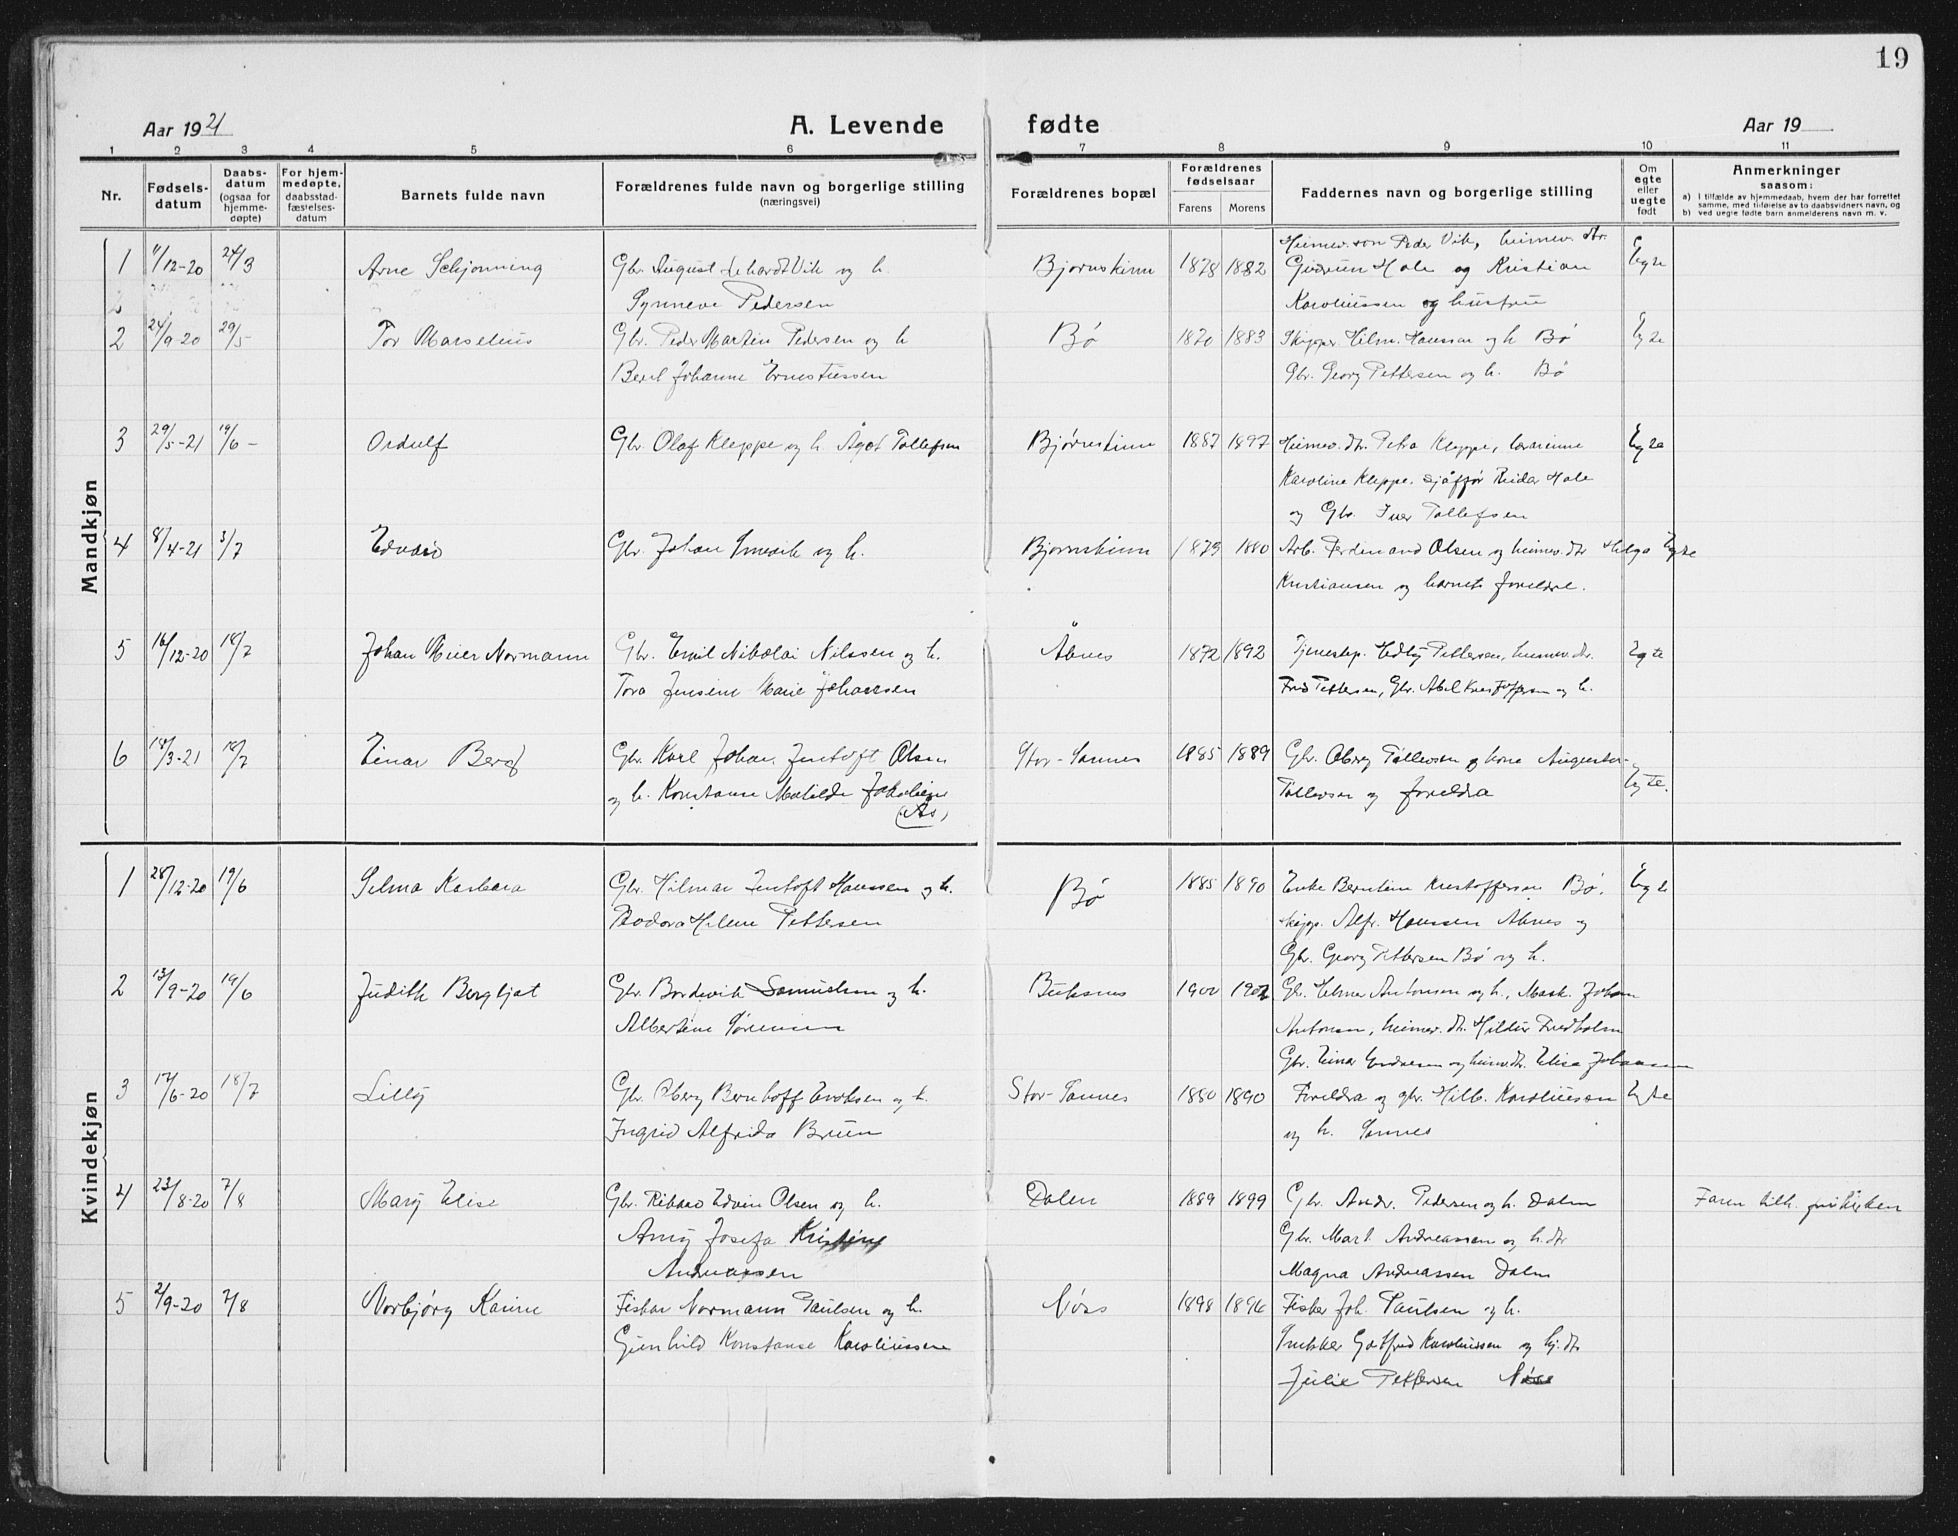 19
Aar 1921 A. Levende fødte Aar 19
1 2 3 4 5 6 7 8 9 10 11
Nr. Fødselsdatum Daabsdatum (ogsaa for hjemmedøpte) For hjemmedøpte, daabsstadfæstelsesdatum Barnets fulde navn Forældrenes fulde navn og borgerlige stilling (næringsvei) Forældrenes bopæl Forældrenes fødselsaar Farens Morens Faddernes navn og borgerlige stilling Om egte eller uegte født Anmerkninger saasom:
a) I tilfælde av hjemmedaab, hvem der har forrettet samme, med tilføielse av to daabsvidners navn, og
b) ved uegte fødte barn anmelderens navn m. v.
Mandkjøn
Heimev. søn Peder Vik, heimev. dr.
1 /12-20 24/3 Arne Schjønning Gbr. August Vik og h. Bjørnskinn 1878 1882 Gudrun Hole og Kristian Egte
Synneve Pedersen Karoliussen og hustru
2 24/9-20 29/5 Tor Marselius Gbr. Peder Martin Pedersen og h Bø 1870 1883 Skipper Hilm. Hanssen og h Bø Egte
Berit Johanne Ernstussen Gbr. Georg Pettersen og h. Bø
3 29/5-21 19/6 - Ordulf Gbr. Olaf Kleppe og h. Ågot Tollefsen Bjørnskinn 1887 1897 Heimev. dtr. Petra Kleppe, lærarinne Egte
Karoline Kleppe, sjåffør Reidar Hole
og Gbr. Iver Tollefsen
4 8/4-21 3/7 Edvard Gbr. Johan Smevik og h. Bjørnskinn 1879 1880 Arb. Ferdinand Olsen og heimev. dtr Helga Egte
Kristiansen og barnets foreldre.
5 16/12-20 18/7 Johan Meier Normann Gbr. Emil Nikolai Nilssen og h. Åbnes 1872 1892 Tjenestep. Hedly Pettersen, heimev. dtr. Egte
Tora Jensine Marie Johanssen Frid Pettersen, Gbr. Abel Kristoffersen og h.
6 18/3-21 18/7 Einar Berg Gbr. Karl Johan Jentoft Olsen Stor-Sannes 1885 1889 Gbr. Oberg Tollevsen og kona Augusta
og h. Konstanse Matilde Jakobsen Tollevsen og foreldra Egte.
(Ås)
Kvindekjøn
1 28/12-20 19/6 Selma Barbara Gbr. Hilmar Jentoft Hanssen og h. Bø 1885 1890 Enke Berntine Kristoffersen Bø, Egte
Teodora Helene Pettersen skipp. Alfr. Hanssen Åbnes og
Gbr. Georg Pettersen Bø og h.
2 13/9-20 19/6 Judith Bergljot Gbr. Bordevik Samuelsen og h. Buksnes 1900 1902 Gbr. Elmer Antonsen og h., Mask. Johan
Albertine Sørensen Antonsen, heimev. dtr. Hildur Fredholm
Gbr. Einar og heimev. dtr. Elisa Johansen
3 17/6-20 18/7 Lilly Gbr. Oberg Bernhoff Evensen og h. Stor-Sannes 1880 1890 Foreldra og gbr. Hilb. Karoliussen Egte
Ingrid Alfrida Bruun og h. Sannes
4 23/8-20 7/8 Mary Elise Gbr. Rikard Edvin Olsen og h. Dalen 1889 1899 Gbr. Andr. Pedersen og h. Dalen Faren tilh. frikirken
Amy Josefa Kristine Gbr. Mart. Andreassen og h. dtr
Andreassen Magna Andreassen Dalen
5 2/9-20 7/8 Norbjørg Karine Fisker Normann Paulsen og h. Nøss 1898 1896 Fisker Joh. Paulsen og h.
Gunhild Konstanse Karoliussen Snekker Gotfred Karoliussen og hj. dtr
Julie Pettersen Nøss